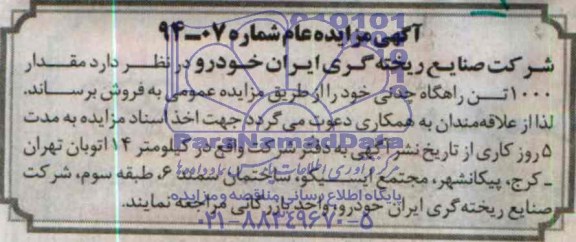 آگهی مزایده عام شماره ۰۷-۹۴
شرکت صنایع ریخته گری ایران خودرو در نظر دارد مقدار
۱۰۰۰ تن راهگاه چدنی خود را از طریق مزایده عمومی به فروش برساند.
لذا از علاقه‌مندان به همکاری دعوت می گردد جهت اخذ اسناد مزایده به مدت
۵ روز کاری از تاریخ نشر آگهی به دفتر شرکت واقع در کیلومتر ۱۴ اتوبان تهران
ـ کرج، پیکانشهر، مجتمع ایسیکو، ساختمان شماره ۶، طبقه سوم، شرکت
صنایع ریخته گری ایران خودرو، واحد بازرگانی مراجعه نمایند.
ParsNamadData
پایگاه اطلاع رسانی مناقصه و مزایده
۰۲۱-۸۸۳۴۹۶۷۰-۵